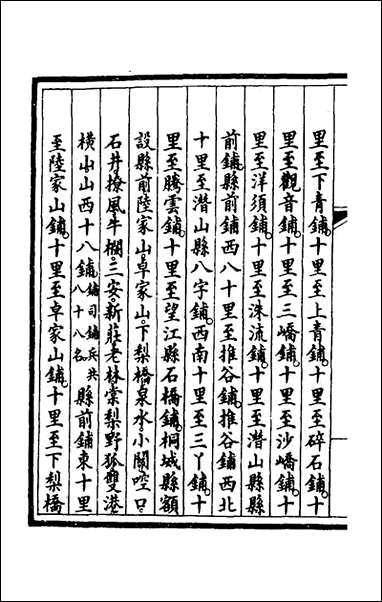 里至下青鋪十里至上青鋪十里至碎石鋪十
里至觀音鋪十里至三嶠鋪十里至沙嶠鋪十
里至洋須鋪十里至洙流鋪十里至潛山縣縣
前鋪縣前鋪西八十里至推谷鋪推谷鋪西北
十里至潛山縣八字鋪西南十里至三丫鋪十
里至騰雲鋪十里至望江縣石橋鋪桐城縣額
設縣前陸家山卓家山下梨橋泉水小關崆口
石井撩風牛欄三安新莊老林棠梨野狐雙港
橫山山西十八鋪鋪司鋪兵共八十八名縣前鋪東十里
至陸家山鋪十里至卓家山鋪十里至下梨橋